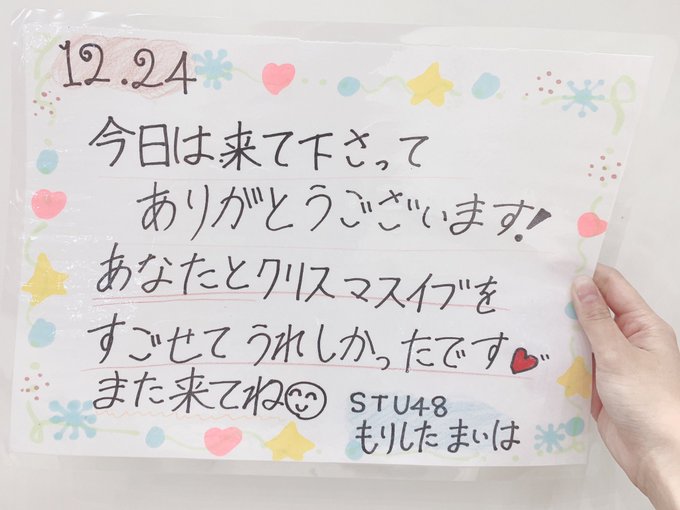 12.24
今日は来て下さって
ありがとうございます!
あなたとクリスマスイブを
すごせてうれしかったです
また来てね
STU48
もりした まいは